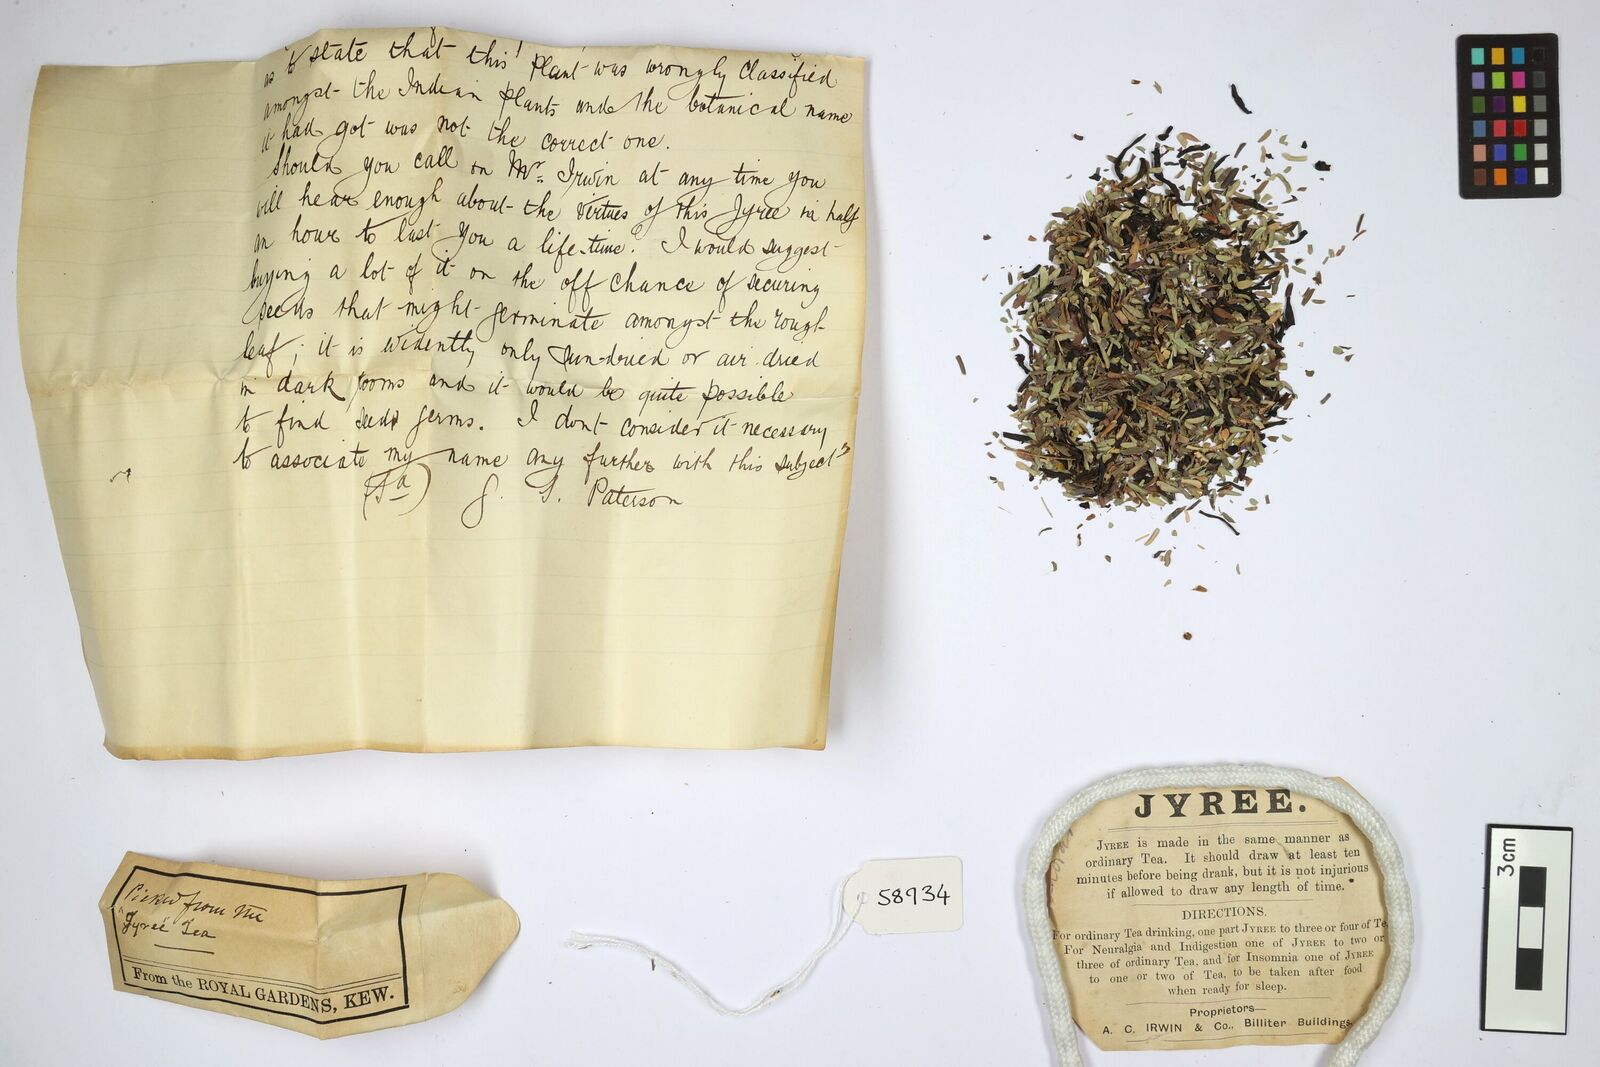 as to state that this plant was wrongly classified
amongst the Indian plants and the botanical name
it had got was not the correct one.
Should you call on Mr. Irwin at any time you
will hear enough about the virtues of this Jyree in half
an hour to last you a life-time. I would suggest
buying a lot of it on the off chance of securing
seeds that might germinate amongst the rough
leaf; it is evidently only sun-dried or air dried
in dark rooms and it would be quite possible
to find seed germs. I dont consider it necessary
to associate my name any further with this subject"
Paterson
Picked from the
"Jyree" Tea
From the ROYAL GARDENS, KEW.
58934
JYREE.
JYREE is made in the same manner as
ordinary Tea. It should draw at least ten
minutes before being drank, but it is not injurious
if allowed to draw any length of time.
DIRECTIONS.
For ordinary Tea drinking, one part JYREE to three or four of Te
For Neuralgia and Indigestion one of JYREE to two or
three of ordinary Tea, and for Insomnia one of JYREE
to one or two of Tea, to be taken after food
when ready for sleep.
Proprietors—
A. C. IRWIN & Co., Billiter Buildings,
3cm